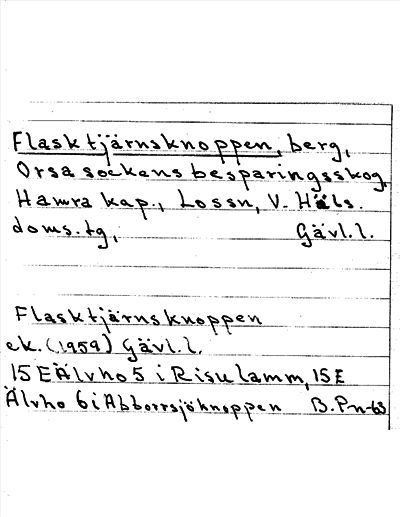 Flasktjärnsknoppen, berg,
Orsa sockens besparingsskog,
Hamra kap., Lossn, V. Häls.
doms.tg, Gävl.l.
Flasktjärnsknoppen
ek. (1959) Gävl.l.
15 E Älvho 5 i Risulamm, 15 E
Älvho 6 i Abborrsjöknoppen B.P-n-63